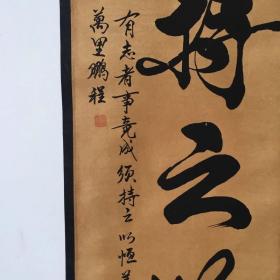 持之以
有志者事竟成须持之以恒
萬里鹏程